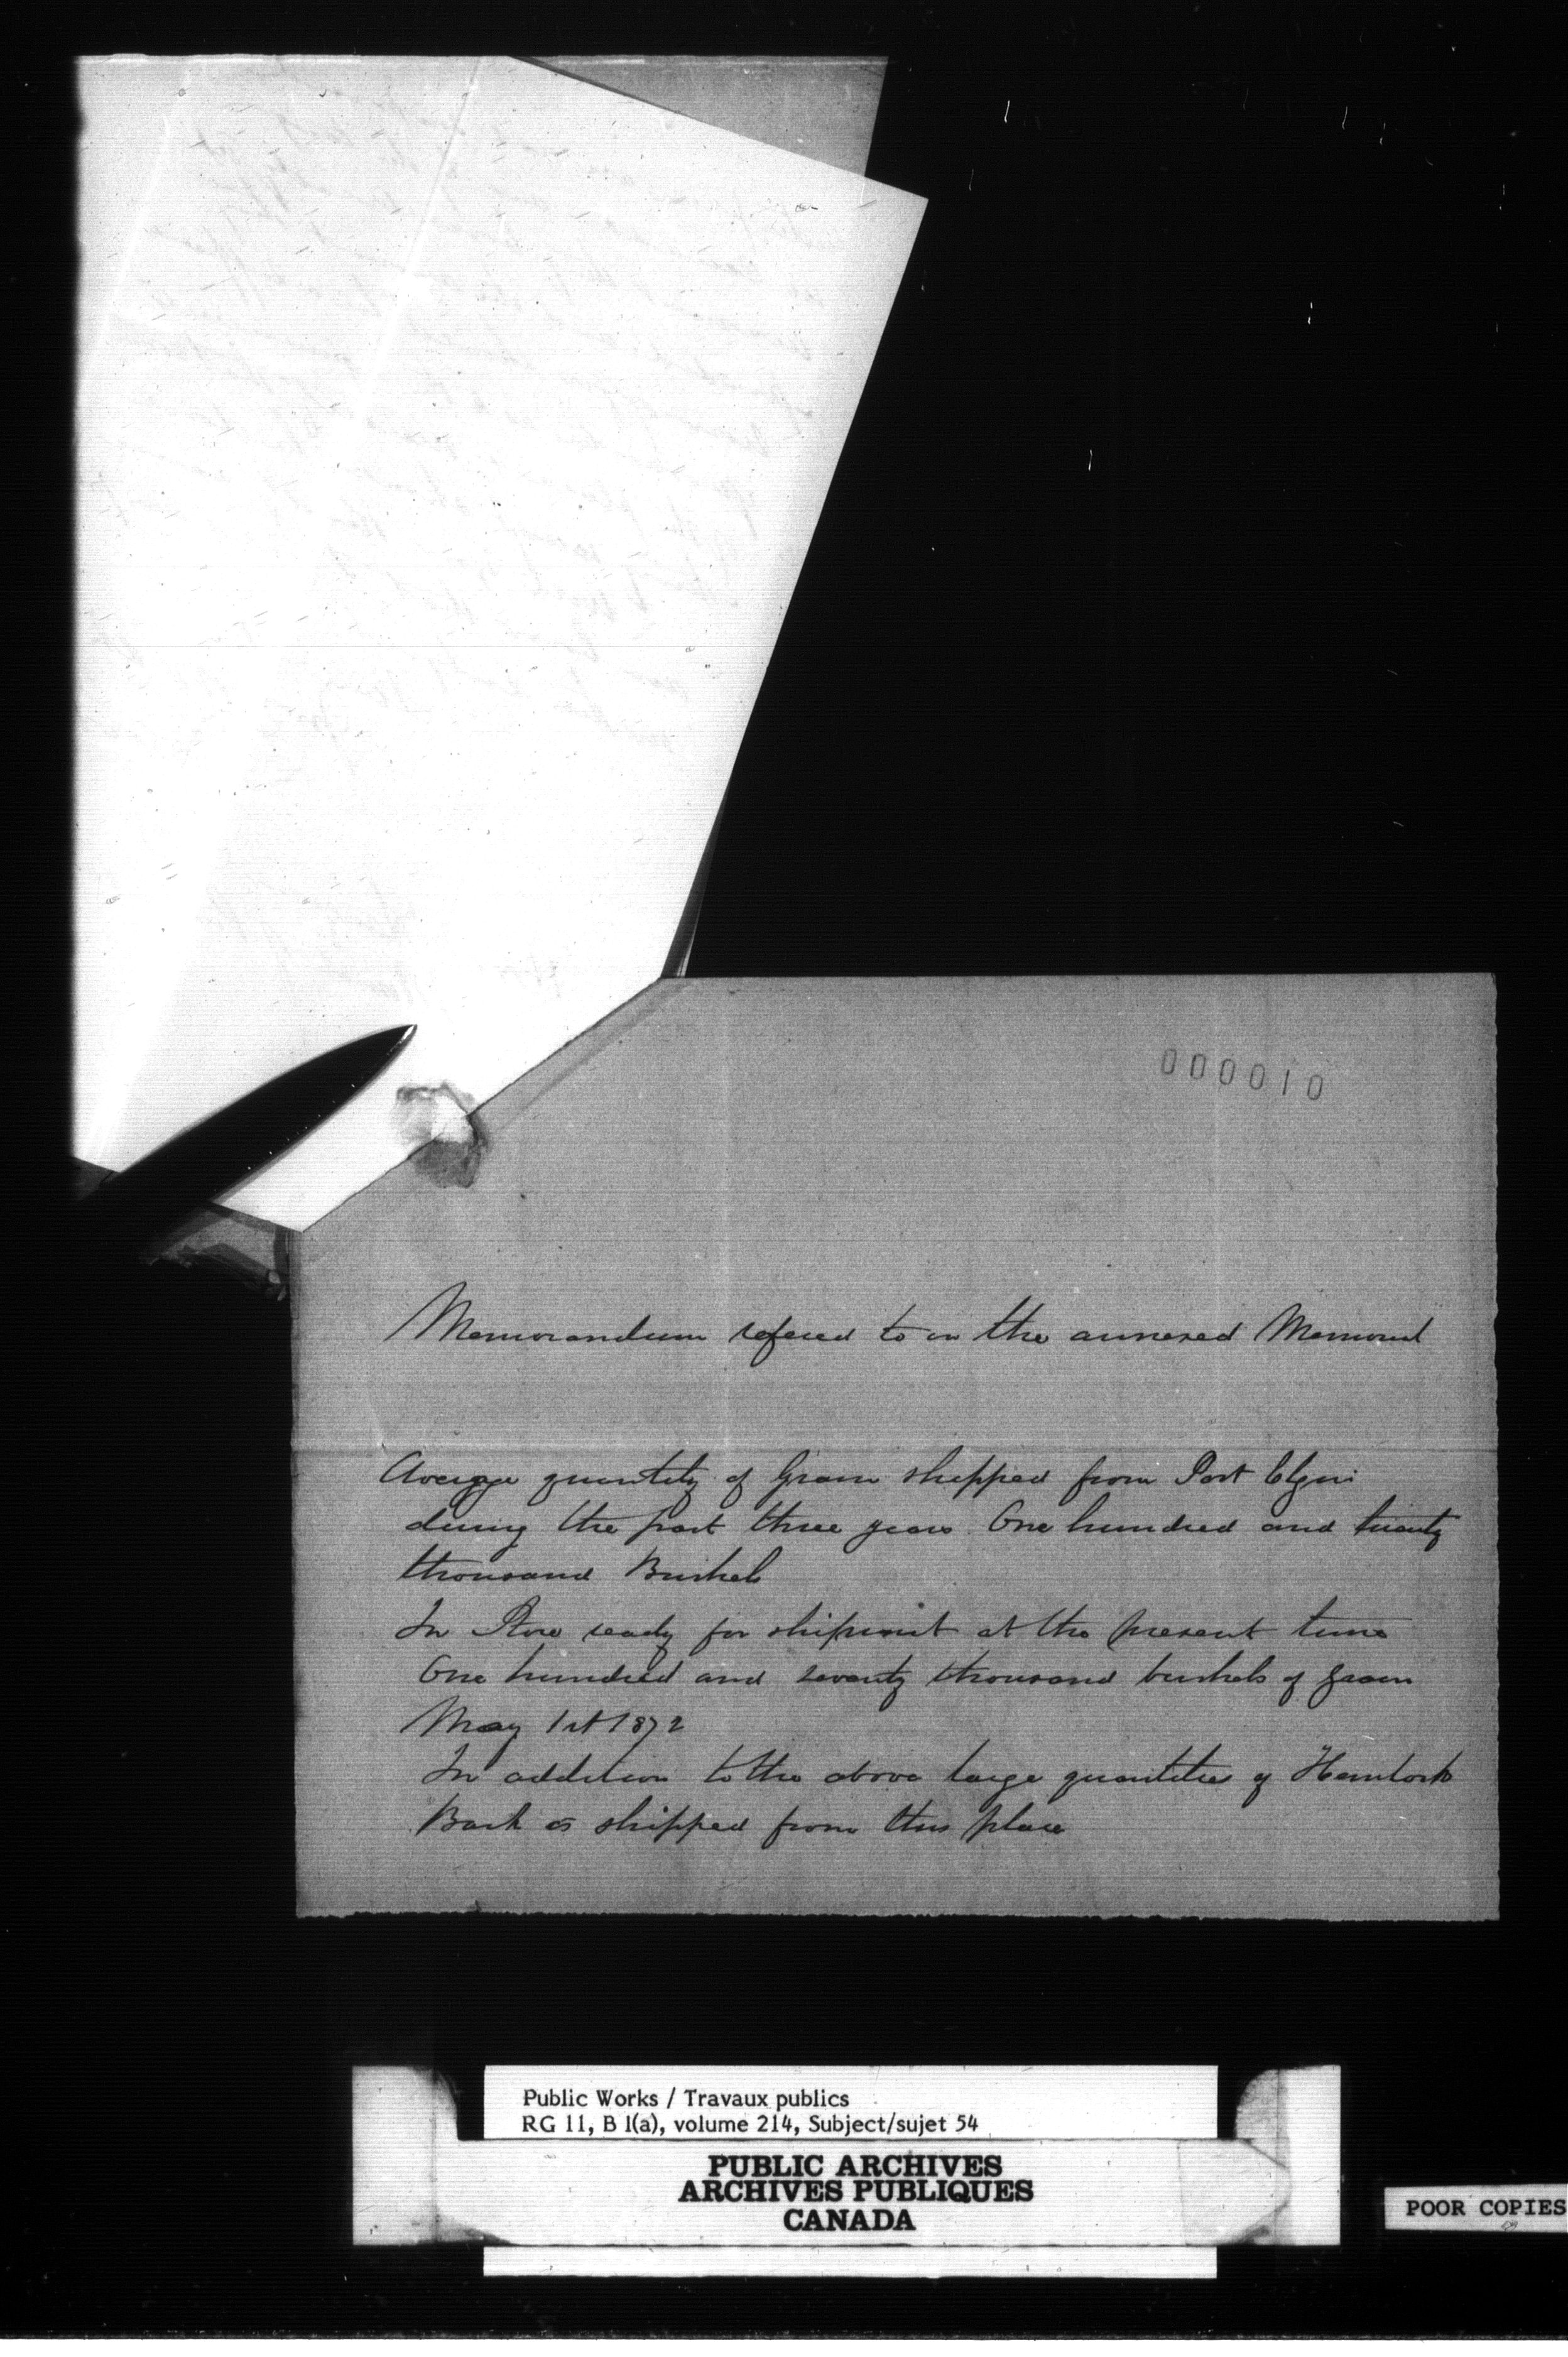 000010
Memorandum refered to in the annexed Memorial
Average quantity of Grain shipped from Port Elgin
during the past three years One hundred and twenty
thousand Bushels
In Store ready for shipment at the present time
One hundred and seventy thousand bushels of grain
May 1st 1872
In addition to the above large quantities of Hemlock
Bark is shipped from this place
Public Works / Travaux publics
RG 11, B 1(a), volume 214, Subject/sujet 54
PUBLIC ARCHIVES
ARCHIVES PUBLIQUES
CANADA
POOR COPIES